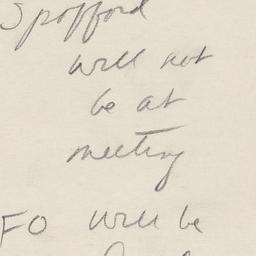 Spofford
will not
be at
meeting
FO will be